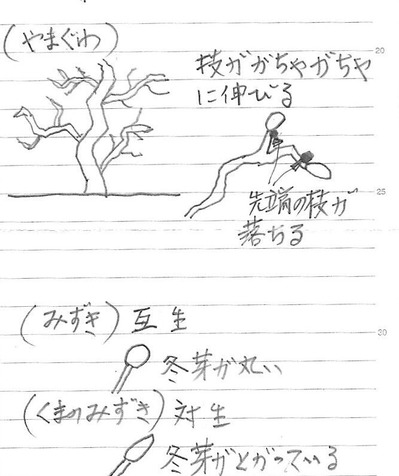 (やまぐわ)
20
枝ががちゃがちゃ
に伸びる
25
先端の枝が
落ちる
30
(みずき) 互生
冬芽が丸い
(くまのみずき) 対生
冬芽がとがっている